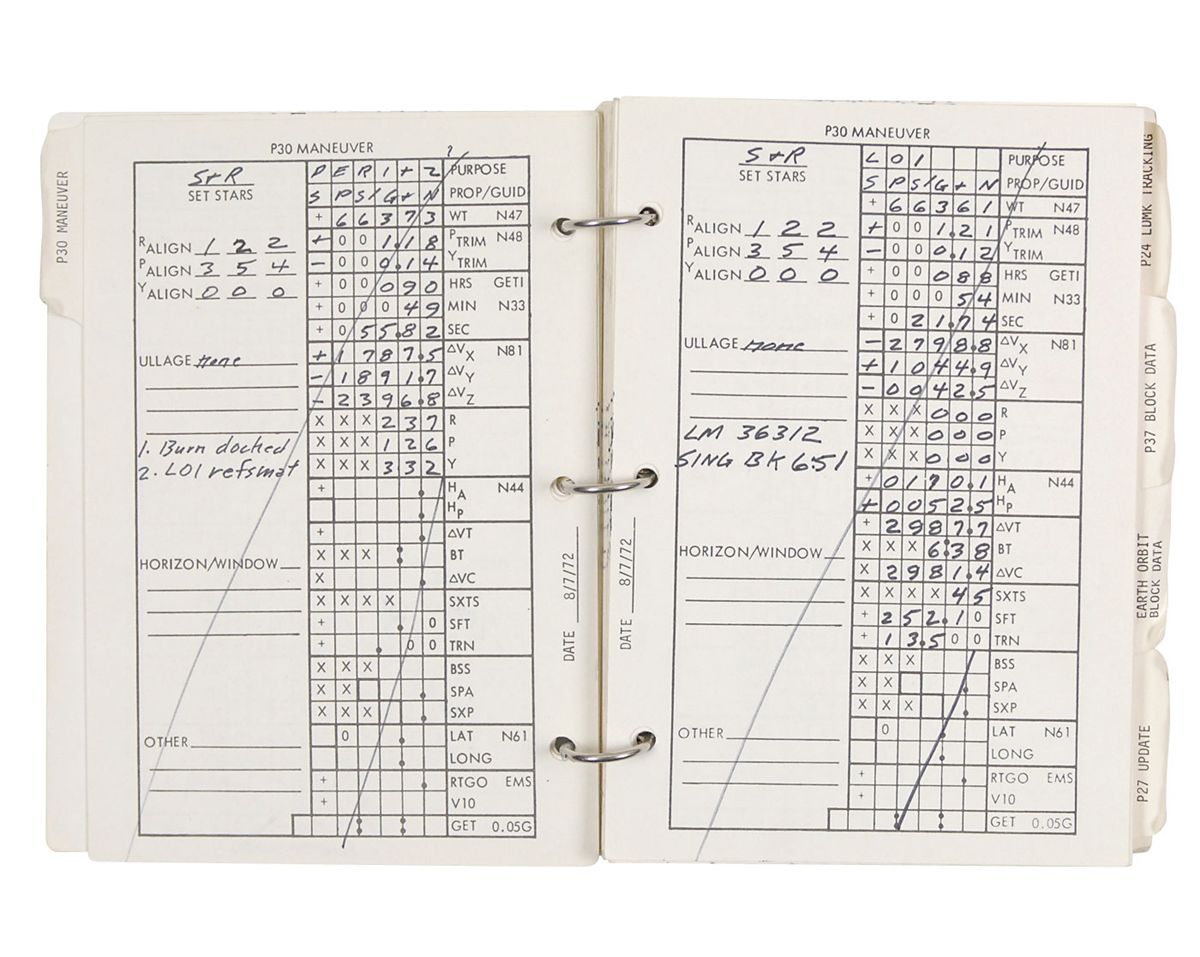 P30 MANEUVER
P30 MANEUVER
S+R
SET STARS
P E R I + 2 PURPOSE
S P S / G + N PROP/GUID
+ 6 6 3 7 3 WT N47
R ALIGN 1 2 2
+ 0 0 1.1 8 P TRIM N48
P ALIGN 3 5 4
- 0 0 0.1 4 Y TRIM
Y ALIGN 0 0 0
+ 0 0 0 9 0 HRS GETI
+ 0 0 0 4 9 MIN N33
+ 0 5 5.8 2 SEC
ULLAGE none
+ 1 7 8 7.5 ΔVX N81
- 1 8 9 1.7 ΔVY
- 2 3 9 6.8 ΔVZ
X X X 2 3 7 R
1. Burn docked
X X X 1 2 6 P
2. LOI refsmat
X X X 3 3 2 Y
+ . HA N44
. HP
+ . ΔVT
HORIZON/WINDOW
X X X : BT
X . ΔVC
X X X X SXTS
+ . 0 SFT
+ . 0 0 TRN
X X X BSS
X X . SPA
X X X . SXP
OTHER
0 . LAT N61
. LONG
+ . RTGO EMS
+ V10
: : GET 0.05G
DATE 8/7/72
P30 MANEUVER
S+R
SET STARS
L O I PURPOSE
S P S / G + N PROP/GUID
+ 6 6 3 6 1 WT N47
R ALIGN 1 2 2
+ 0 0 1.2 1 P TRIM N48
P ALIGN 3 5 4
- 0 0 0.1 2 Y TRIM
Y ALIGN 0 0 0
+ 0 0 0 8 8 HRS GETI
+ 0 0 0 5 4 MIN N33
+ 0 2 1.7 4 SEC
ULLAGE none
- 2 7 9 8.8 ΔVX N81
+ 1 0 4 4.9 ΔVY
- 0 0 4 2.5 ΔVZ
X X X 0 0 0 R
LM 36312
X X X 0 0 0 P
SING BK 6:51
X X X 0 0 0 Y
+ 0 1 7 0.1 HA N44
+ 0 0 5 2.5 HP
+ 2 9 8 7.7 ΔVT
HORIZON/WINDOW
X X X 6:3 8 BT
X 2 9 8 1.4 ΔVC
X X X X 4 5 SXTS
+ 2 5 2.1 0 SFT
+ 1 3.5 0 0 TRN
X X X BSS
X X . SPA
X X X . SXP
OTHER
0 . LAT N61
. LONG
+ . RTGO EMS
+ V10
: : GET 0.05G
DATE 8/7/72
P24 LDMK TRACKING
P37 BLOCK DATA
EARTH ORBIT
BLOCK DATA
P27 UPDATE